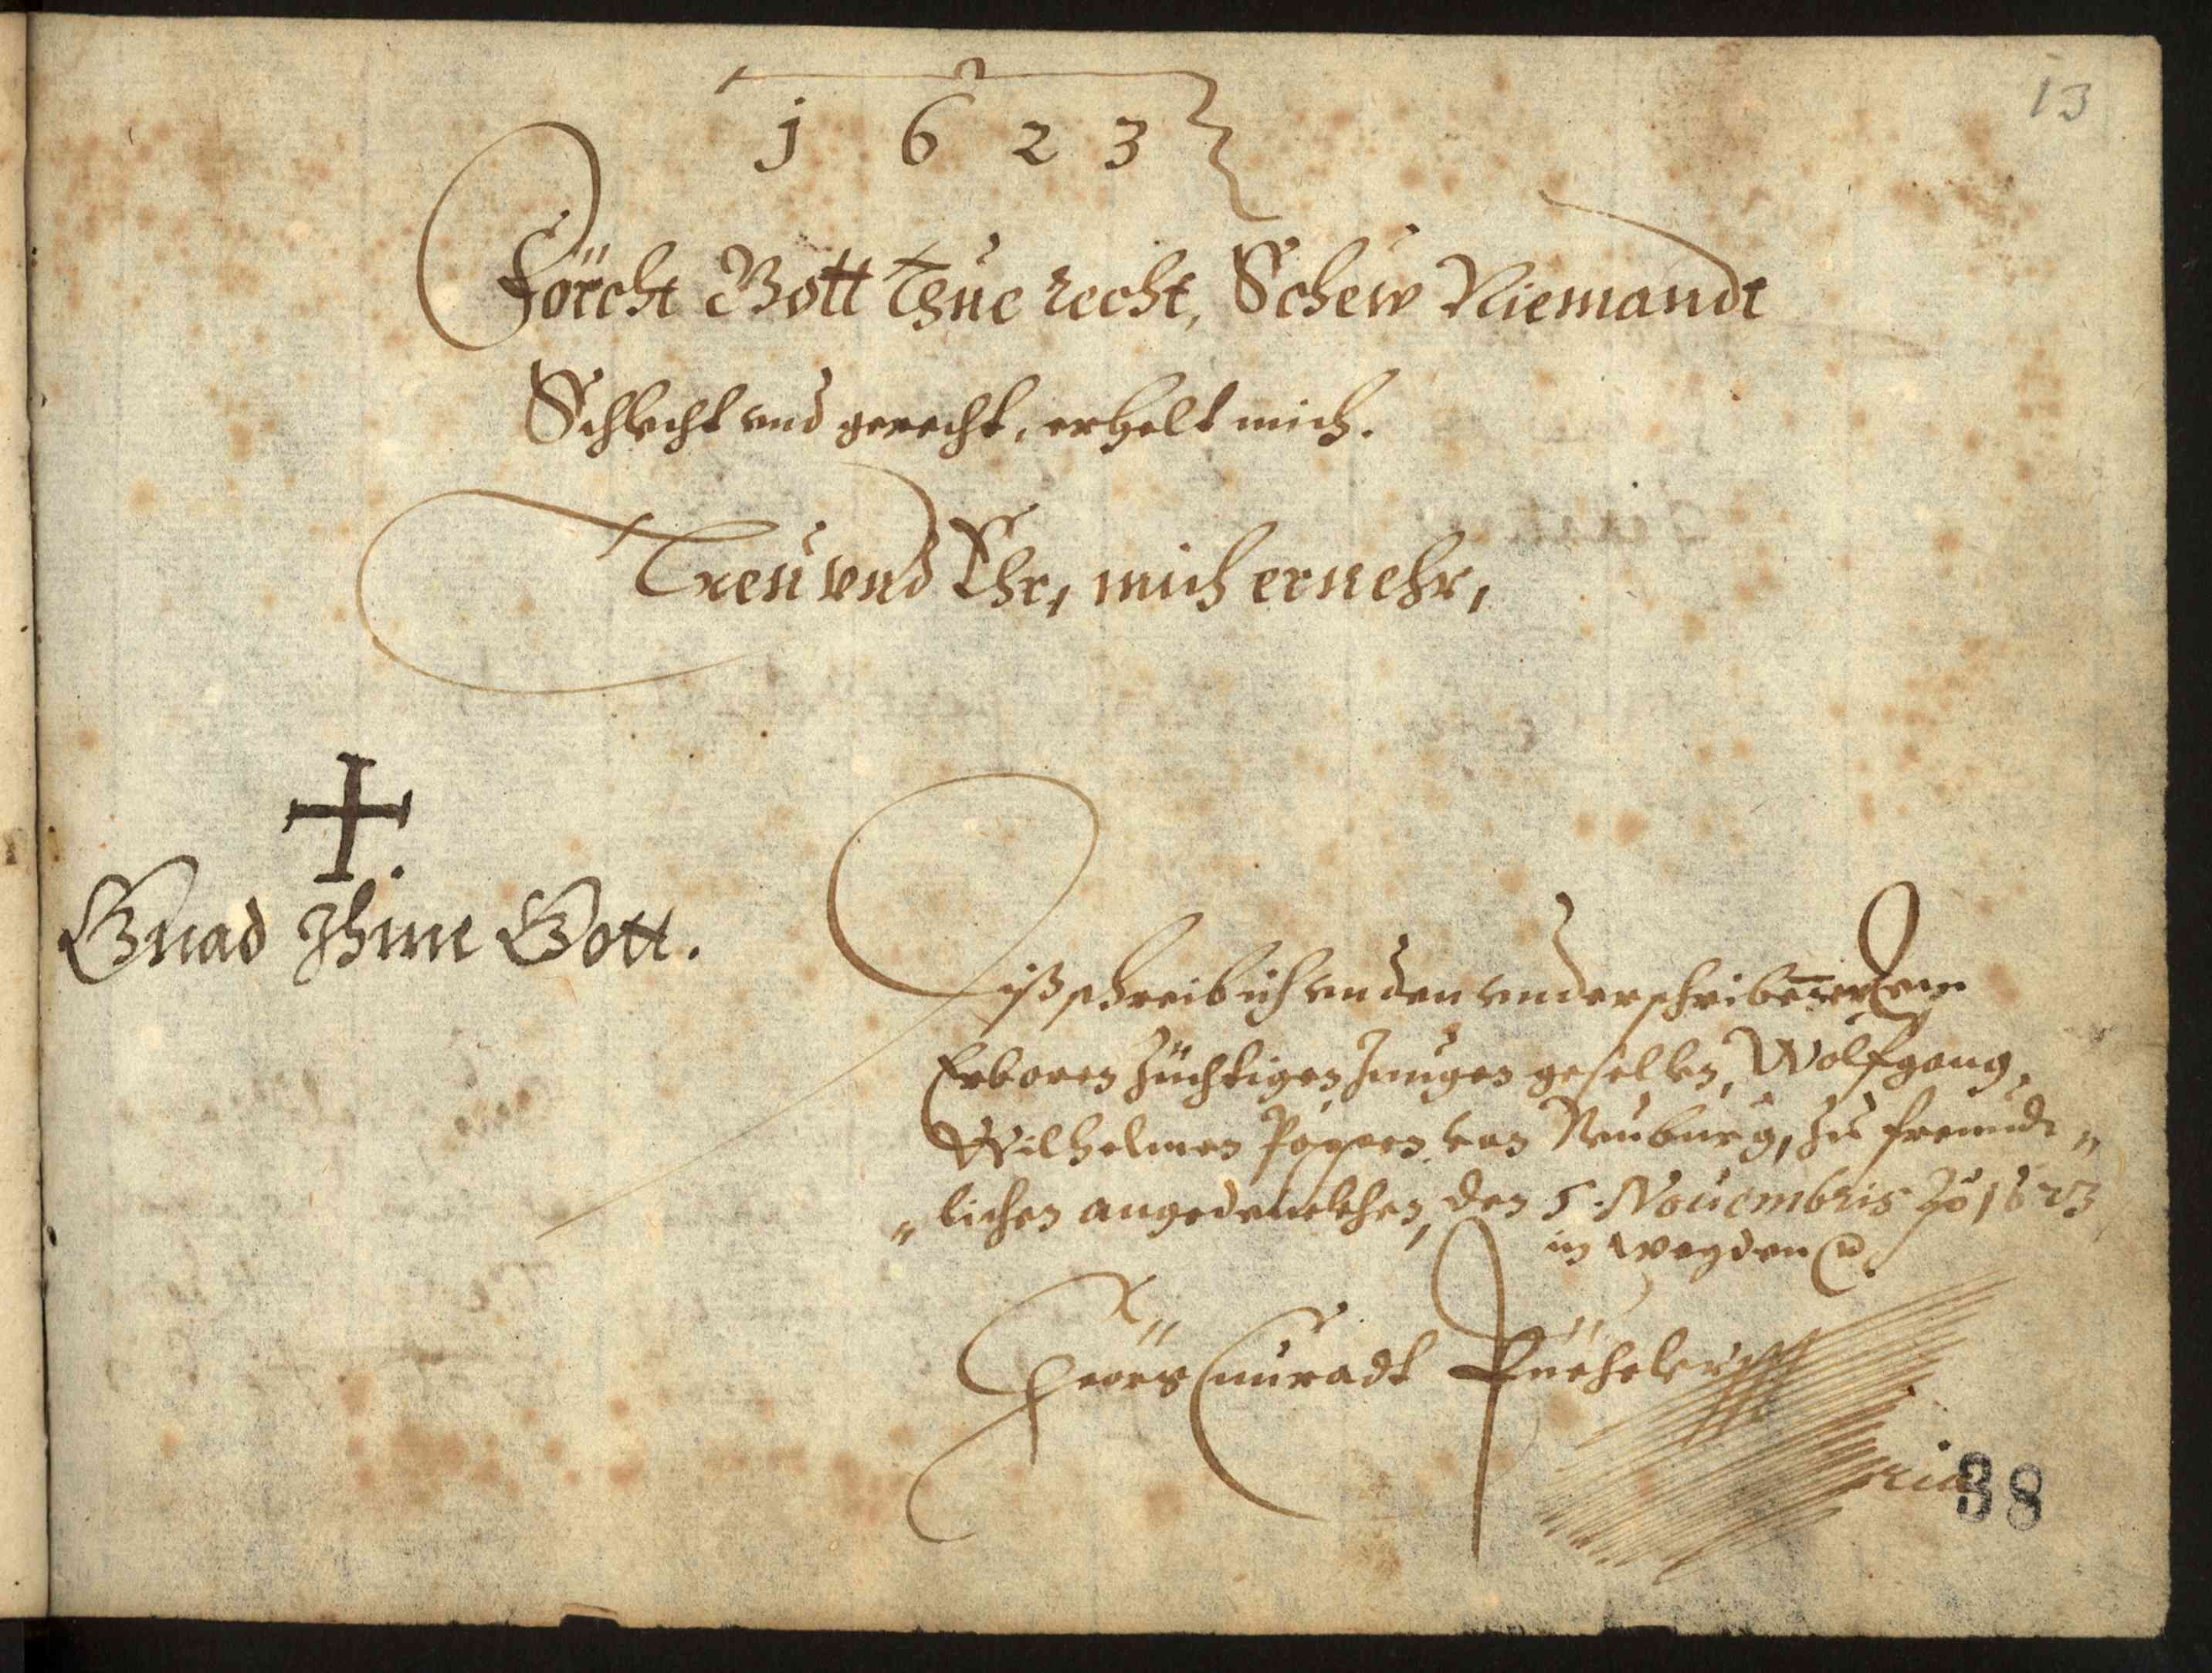 13
1623
Förcht Gott Thue recht, Schew Niemandt
Schlecht vnd gerecht, erhelt mich.
Treu vnd Ehr, mich ernehr,
Gnad Ihme Gott.
Diß schreib ich en den vnderschribener dem
Erbaren züchtigen Jungen gesellen, Wolfgang
Wilhelmen Poppen von Neuburg, zu freundt„
„lichen angedenckhen, den 5. Nouembris Ao 1623
in weyden
Geörg Cunradt Püehler
38